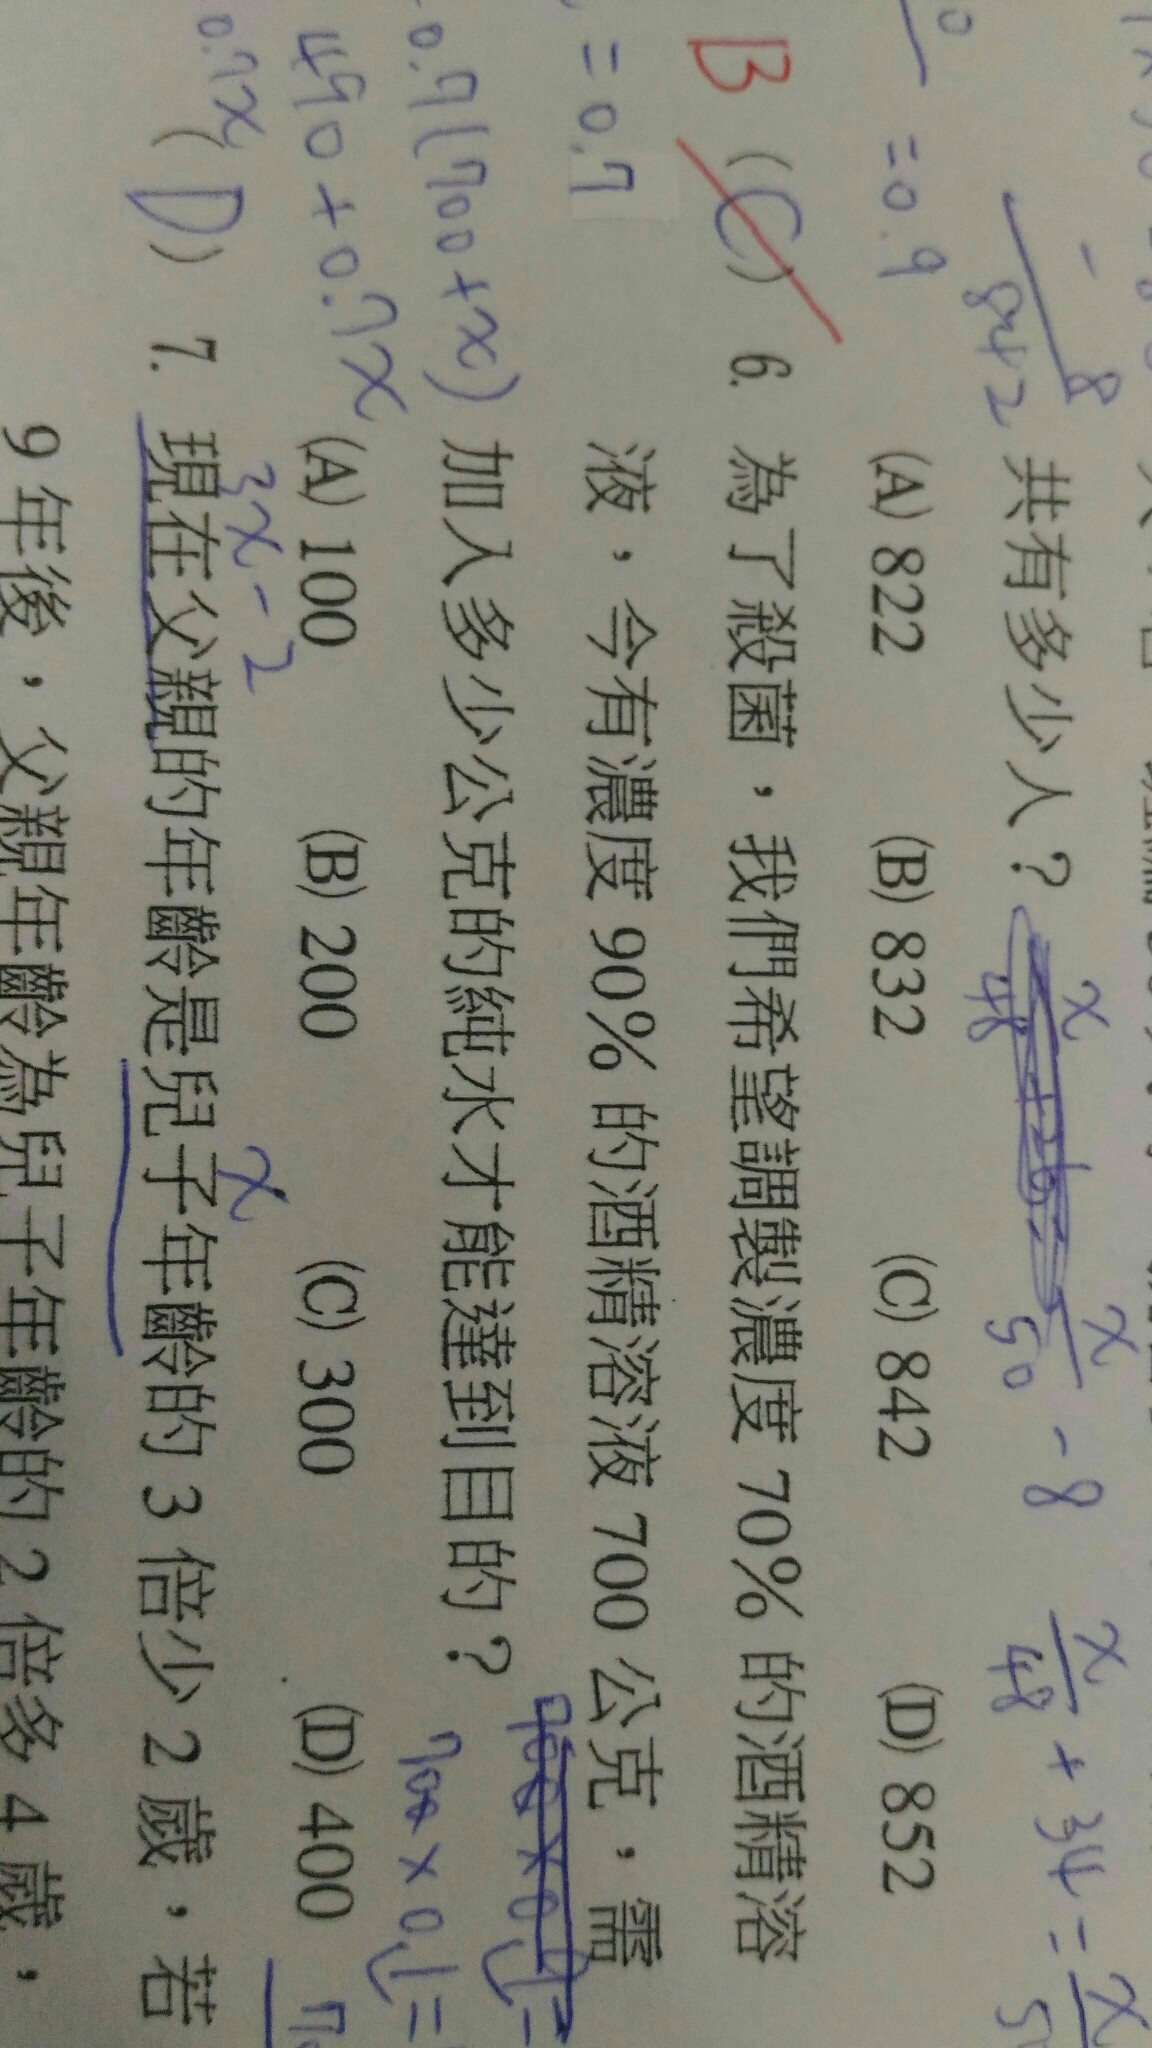 - 8
842
共有多少人？
x
48
x
50
- 8
x
48
+ 34 =
x
= 0.9
(A) 822 (B) 832 (C) 842 (D) 852
B (C) 6. 為了殺菌，我們希望調製濃度 70% 的酒精溶
= 0.7
液，今有濃度 90% 的酒精溶液 700 公克，需
0.7(700+x)
加入多少公克的純水才能達到目的？
700 × 0.
490 + 0.7x
(A) 100 (B) 200 (C) 300 (D) 400
0.7x
3x - 2
x
(D) 7. 現在父親的年齡是兒子年齡的 3 倍少 2 歲，若
9 年後，父親年齡為兒子年齡的 2 倍多 4 歲，